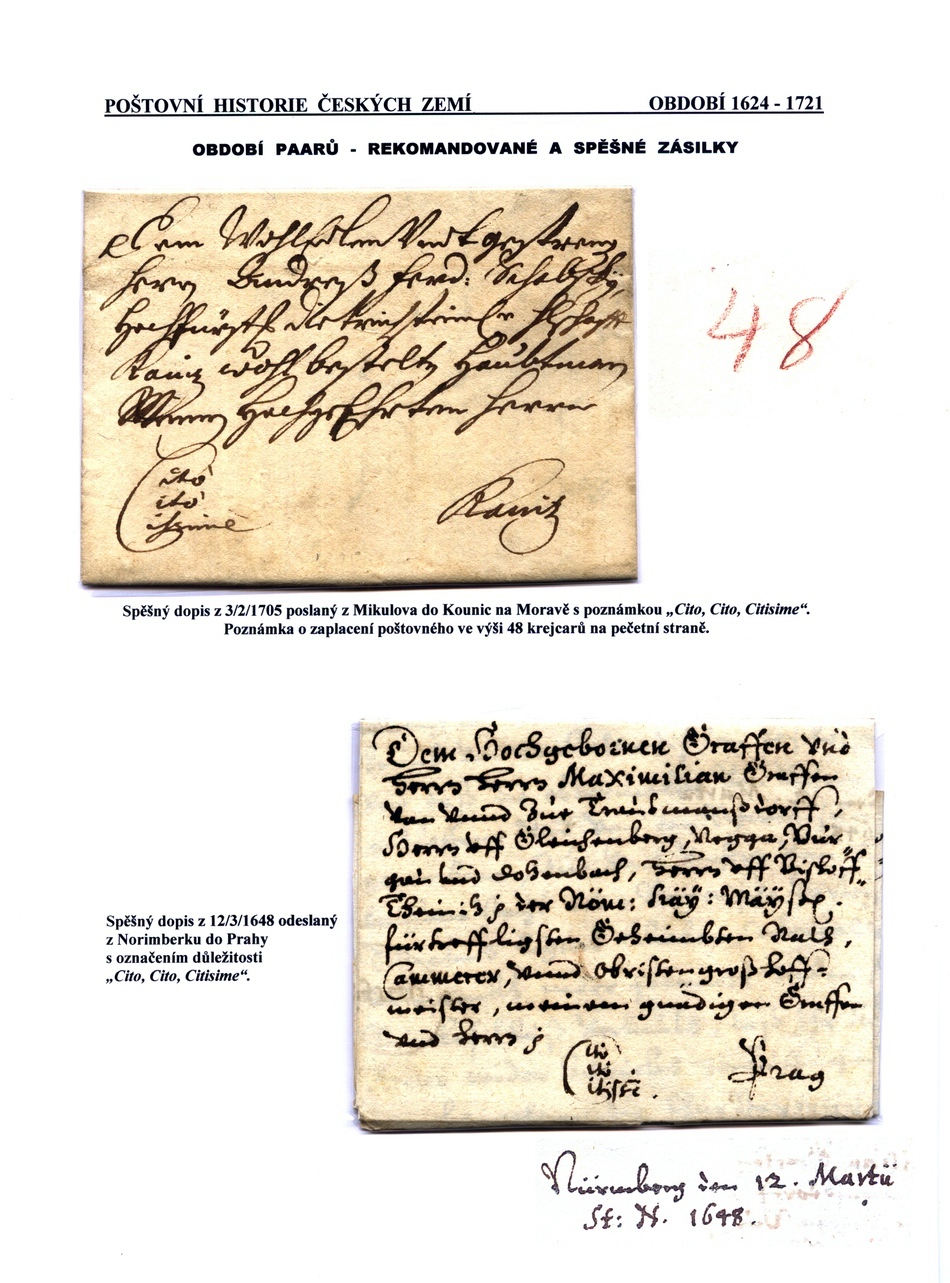 POŠTOVNÍ HISTORIE ČESKÝCH ZEMÍ OBDOBÍ 1624 - 1721
OBDOBÍ PAARŮ - REKOMANDOVANÉ A SPĚŠNÉ ZÁSILKY
Dem Wohledlen Vndt gestreng
Herrn Andreß Ferd:
Hochfürstl dietrichstein
Kaniz wohl bestelten Haubtman
Meinem Hochgeehrten Herrn
Cito
cito
citissime
Kaniz
48
Spěšný dopis z 3/2/1705 poslaný z Mikulova do Kounic na Moravě s poznámkou „Cito, Cito, Citisime“.
Poznámka o zaplacení poštovného ve výši 48 krejcarů na pečetní straně.
Dem Hochgebornen Graffen vnd
Herrn Herrn Maximilian Graffen
von vnnd zue Trautmanßdorff,
Herrn vff Gleichenberg, Negga, Bur-
gau vnd dozenbach, Herrn vff Bischoff-
Theinitz der Röm: Kaÿ: Maÿst.
fürtreffligsten Geheimbten Rath,
Cammerer, vnnd Obristengroßhoff-
meister, meinem gnädigen Graffen
vnd Herrn
Cito
cito
citiss.
Prag
Spěšný dopis z 12/3/1648 odeslaný
z Norimberku do Prahy
s označením důležitosti
„Cito, Cito, Citisime“.
Nürmberg den 12. Martii
St: N. 1648.